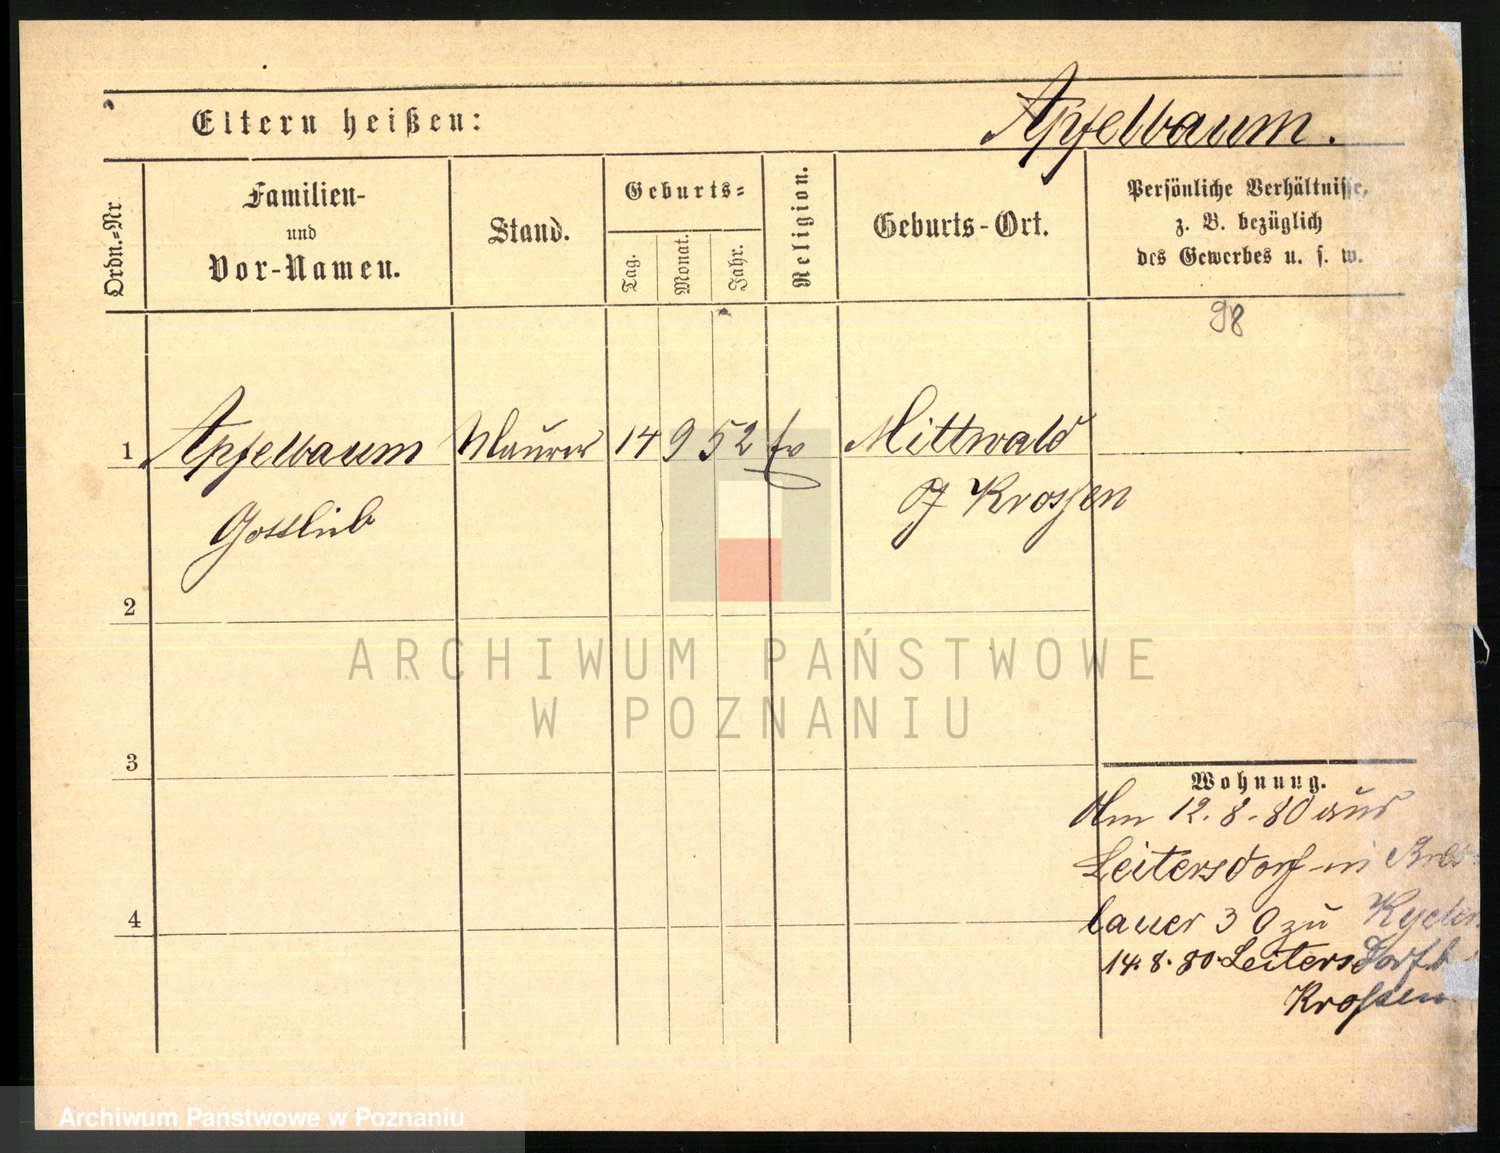 Apfelbaum.
Eltern heißen:
Ordn.=Nr.
Familien-
und
Vor-Namen.
Stand.
Geburts=
Tag.
Monat.
Jahr.
Religion.
Geburts-Ort.
Persönliche Verhältnisse,
z. B. bezüglich
des Gewerbes u. s. w.
98
1 Apfelbaum Maurer 14 9 52 Ev Mittwald
Gottlieb
Krossen
2
3
4
Wohnung.
Am 12. 8. 80 aus
Leitersdorf in
lauer 30 zu
14. 8. 80. Leitersdorf b
Krossen
ARCHIWUM PAŃSTWOWE
W POZNANIU
Archiwum Państwowe w Poznaniu